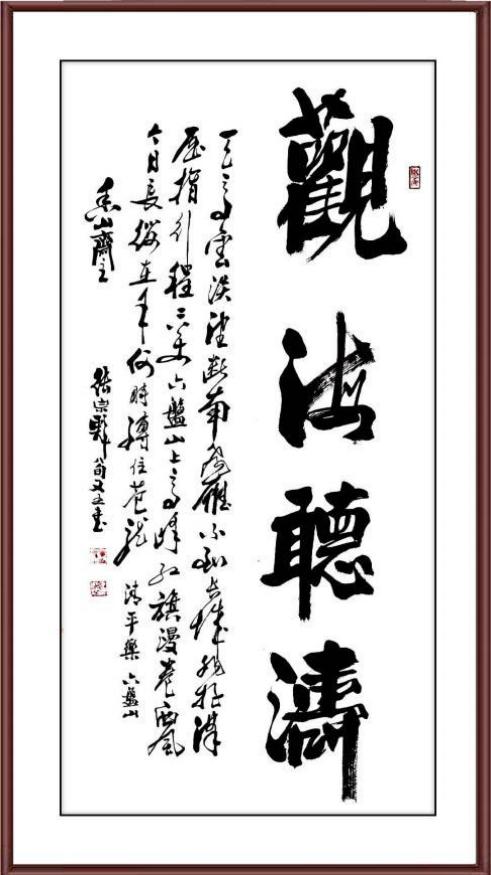 觀海聽濤
天高雲淡望斷南飛雁不到長城非好漢
屈指行程二萬六盤山上高峰紅旗漫卷西風
今日長纓在手何時縛住蒼龍 清平樂 六盤山
香山齋主 張宗